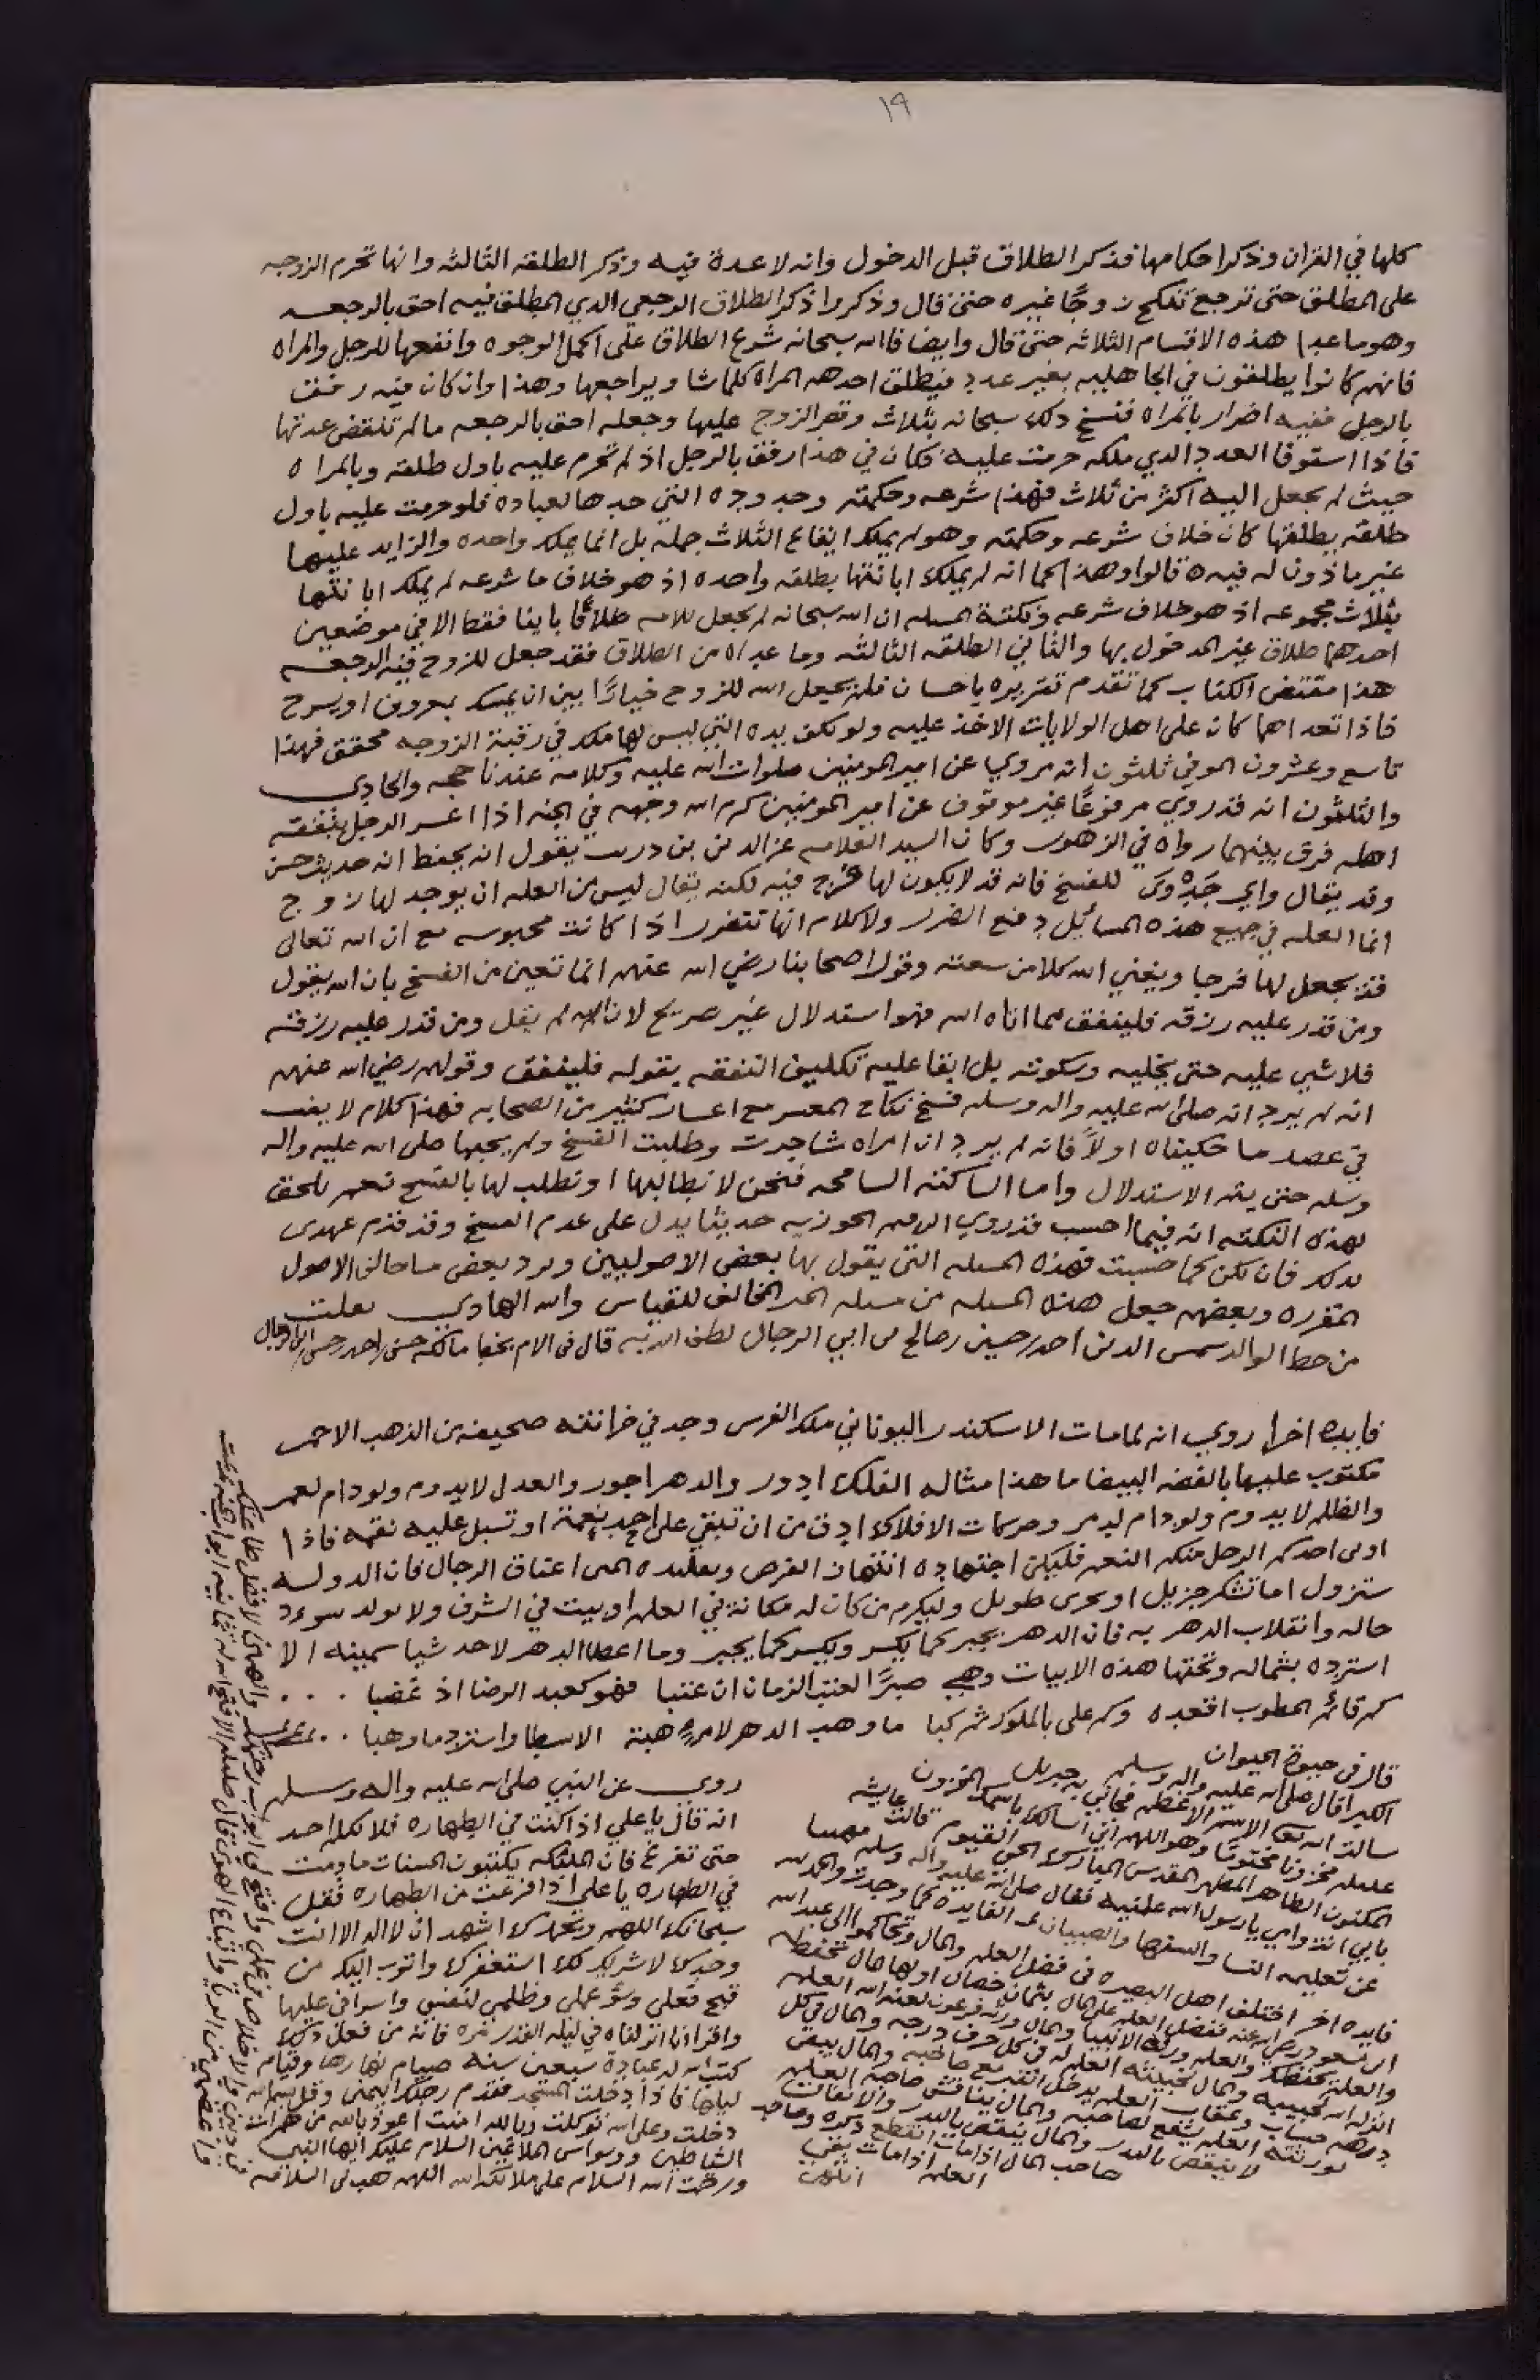 ١٩
كلها في القران وذكر احكامها فذكر الطلاق قبل الدخول وانه لا عدة فيه وذكر الطلقه الثالثه وانها تحرم الزوجه
على المطلق حتى ترجع تنكح زوجًا غيره حتى قال وذكر واذكر الطلاق الرجعي الذي المطلق فيه احق بالرجعه
وهو ما عدا هذه الاقسام الثلاثه حتى قال وايضا فالله سبحانه شرع الطلاق على اكمل الوجوه وانفعها للرجل والمراه
فانهم كانوا يطلقون في الجاهليه بغير عدد فيطلق احدهم المراه كلما شا ويراجعها وهذا وان كان فيه رفق
بالرجل ففيه اضرار بالمراه فنسخ ذلك سبحانه بثلاث وقصر الزوج عليها وجعله احق بالرجعه ما لم تنقض عدتها
فاذا استوفا العدد الذي ملكه حرمت عليه فكان في هذا رفق بالرجل اذ لم تحرم عليه باول طلقه وبالمراه
حيث لم يجعل اليه اكثر من ثلاث فهذا شرعه وحكمته وحدوده التي حدها لعباده فلو حرمت عليه باول
طلقه يطلقها كان خلاف شرعه وحكمته وهو لم يملك ايقاع الثلاث جمله بل انما يملك واحده والزايد عليها
غير ماذون له فيه قالوا وهذا كما انه لم يملك ابانتها بطلقه واحده اذ هو خلاف ما شرعه لم يملك ابانتها
بثلاث مجموعه اذ هو خلاف شرعه ونكتة المسله ان الله سبحانه لم يجعل للامه طلاقًا باينا فقط الا في موضعين
احدهما طلاق غير المدخول بها والثاني الطلقه الثالثه وما عداه من الطلاق فقد جعل للزوج فيه الرجعه
هذا مقتضى الكتاب كما تقدم تقريره باحسان فلن يجعل الله للزوج خيارًا بين ان يمسك بمعروف او يسرح
فاذا تعداهما كان على اهل الولايات الاخذ عليه ولو بكف يده التي ليس لها ملك في رقبة الزوجه محقق فهذا
تاسع وعشرون الموفي ثلثون انه مروي عن امير المومنين صلوات الله عليه وكلامه عندنا حجه والحادي
والثلثون انه قد روي مرفوعًا غير موقوف عن امير المومنين كرم الله وجهه في الجنه اذا اعسر الرجل بنفقة
اهله فرق بينهما رواه في الزهور وكان السيد العلامه عز الدين بن دريب يقول انه يحفظ انه حديث حسن
وقد يقال واي جَدْوى للفسخ فانه قد لا يكون لها فرج فيه لكنه يقال ليس من العله ان يوجد لها زوج
انما العله في جميع هذه المسائل دفع الضرر ولا كلام انها تتضرر اذا كانت محبوسه مع ان الله تعالى
قد يجعل لها فرجا ويغني الله كلا من سعته وقول اصحابنا رضي الله عنهم انما تعين من الفسخ بان الله يقول
ومن قدر عليه رزقه فلينفق مما اتاه الله فهو استدلال غير صريح لان الله لم يقل ومن قدر عليه رزقه
فلا شي عليه حتى يخليه وسكوته بل ابقا عليه تكليف النفقه بقوله فلينفق وقولهم رضي الله عنهم
انه لم يرد انه صلى الله عليه واله وسلم فسخ نكاح المعسر مع اعسار كثير من الصحابه فهذا كلام لا يفت
في عضد ما حكيناه اولاً فانه لم يرد ان امراه شاجرت وطلبت الفسخ ولم يجبها صلى الله عليه واله
وسلم حتى يتم الاستدلال واما الساكته السامحه فنحن لا نطالبها او نطلب لها بالفسخ نعم يلحق
بهذه النكته انه فيما احسب قد روي ابن قيم الجوزيه حديثا يدل على عدم الفسخ وقد قدم عهدي
بذلك فان يكن كما حسبت فهذه المسله التي يقول بها بعض الاصوليين ويرد بعض ما خالف الاصول
المقرره وبعضهم جعل هذه المسله من مسله الخبر المخالف للقياس والله الهادي نقلت
من خط الوالد شمس الدين احمد بن حسين بن صالح بن ابي الرجال لطف الله به قال في الام بخط مالكه حسن بن احمد بن حسن ابي الرجال
فايده اخرا روي انه لما مات الاسكندر اليوناني ملك الفرس وجد في خزانته صحيفه من الذهب الاحمر
مكتوب عليها بالفضه البيضا ما هذا مثاله الفلك ادور والدهر اجور والعدل لا يدوم ولو دام لعمر
والظلم لا يدوم ولو دام لدمر وحركات الافلاك ادق من ان تبقي على احد نعمة او تسبل عليه نقمه فاذا
اولى احدكم الرجل منكم النعم فليكن اجتهاده انتهاز الفرص وتقليده المنن اعناق الرجال فان الدوله
ستزول اما تشكر جزيل او بحزن طويل وليكرم من كان له مكانة في العلم او بيت في الشرف ولا سوء
حاله وانقلاب الدهر به فان الدهر يجبر كما يكسر ويكسر كما يجبر وما اعطا الدهر لاحد شيا بيمينه الا
استرده بشماله وتحتها هذه الابيات وهي صبرًا لعتب الزمان ان عتبا فهو كعبد الرضا اذ غضبا
كم قائم الخطوب اقعده وكم على بالملوك ثم كبا ما وهب الدهر لامرءٍ هبة الا سطا واسترد ما وهبا
قال في حيوة الحيوان
الكبرا قال صلى الله عليه واله وسلم
سالت الله تعالى الاسم الاعظم فجاني به جبريل
مخزونا مختوما وهو اللهم اني اسالك باسمك المخزون
المكنون الطاهر المطهر المقدس المبارك الحي القيوم قالت عايشه
بابي انت وامي يا رسول الله علمنيه فقال صلى الله عليه واله وسلم نهينا
عن تعليمه النسا والصبيان والسفها
فايده اخر اختلف اهل البصره في فضل العلم والمال وتحاكموا الى عبد الله
ابن مسعود رضي الله عنه ففضل العلم على المال بثمان خصال اولها المال تحفظه
والعلم يحفظك والعلم ورثه الانبيا والمال ورثه فرعون لعنه الله
درهم حساب وعقاب العلم يدخل القبر مع صاحبه والمال يبقى
لورثته العلم يشفع لصاحبه والمال يناقش صاحبه العلم
لا ينقص بالبذر والمال ينقص بالبذر والانفاق
صاحب المال اذا مات انقطع ذكره وصاحب
العلم اذا مات بقي
روي عن النبي صلى الله عليه واله وسلم
انه قال يا علي اذا كنت في الطهاره فلا تكلم احد
حتى تفرغ فان الملئكه يكتبون الحسنات ما دمت
في الطهاره يا علي اذا فرغت من الطهاره فقل
سبحانك اللهم وبحمدك اشهد ان لا اله الا انت
وحدك لا شريك لك استغفرك واتوب اليك من
قبح فعلي وسوء عملي وظلمي لنفسي واسرافي عليها
واقرا انا انزلناه في ليلة القدر مره فانه من فعل ذلك
كتب الله له عبادة سبعين سنه صيام نهارها وقيام
ليلها فاذا دخلت المسجد فقدم رجلك اليمنى وقل بسم الله
دخلت وعلى الله توكلت وبالله امنت اعوذ بالله من همزات
الشاطين ووسواس الملاعين السلام عليك ايها النبي
ورحمت الله السلام على ملائكة الله اللهم هب لي السلامه